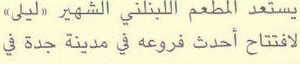 يستعد المطعم اللبنلني الشهير «ليلى»
لافتتاح أحدث فروعه في مدينة جدة في